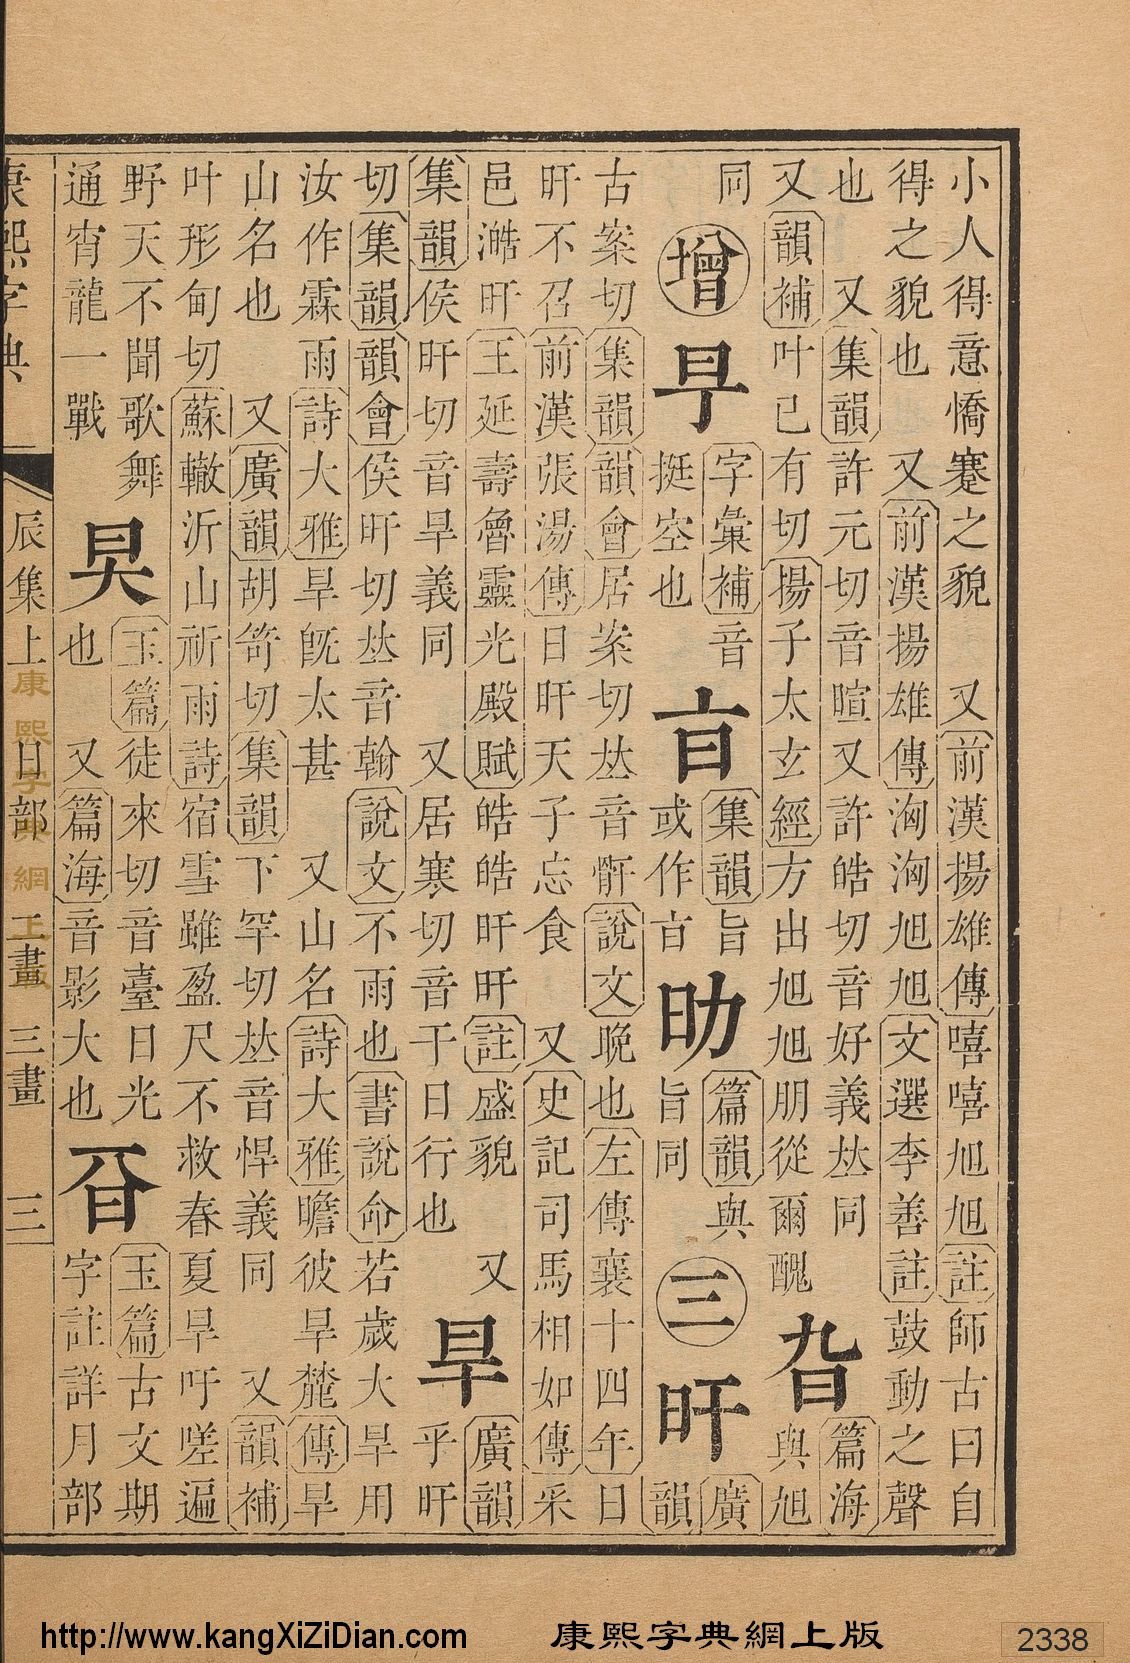 小人得意憍蹇之貌 又前漢揚雄傳嘻嘻旭旭註師古曰自
得之貌也 又前漢揚雄傳洶洶旭旭文選李善註鼓動之聲
也 又集韻許元切音暄又許皓切音好義𠀤同
又韻補叶已有切揚子太玄經方出旭旭朋從爾醜
旮 篇海
與旭
同
增
𣅀 字彙補音
挺空也
㫖 集韻旨
或作㫖
㫑 篇韻與
旨同
三
旰 廣
韻
古案切集韻韻會居案切𠀤音骭說文晚也左傳襄十四年日
旰不召前漢張湯傳日旰天子忘食 又史記司馬相如傳采
邑澔旰王延壽魯靈光殿賦皓皓旰旰註盛貌 又
集韻侯旰切音旱義同 又居寒切音干日行也
旱 廣韻
乎旰
切集韻韻會侯旰切𠀤音翰說文不雨也書說命若歲大旱用
汝作霖雨詩大雅旱旣太甚 又山名詩大雅瞻彼旱麓傳旱
山名也 又廣韻胡笴切集韻下罕切𠀤音悍義同 又韻補
叶形甸切蘇轍沂山祈雨詩宿雪雖盈尺不救春夏旱吁嗟遍
野天不聞歌舞
通宵龍一戰
旲 玉篇徒來切音臺日光
也 又篇海音影大也
𣅆 玉篇古文期
字註詳月部
康熙字典
辰集上 日部 三畫 三
康熙字典網上版
http://www.kangXiZiDian.com
康熙字典網上版
2338